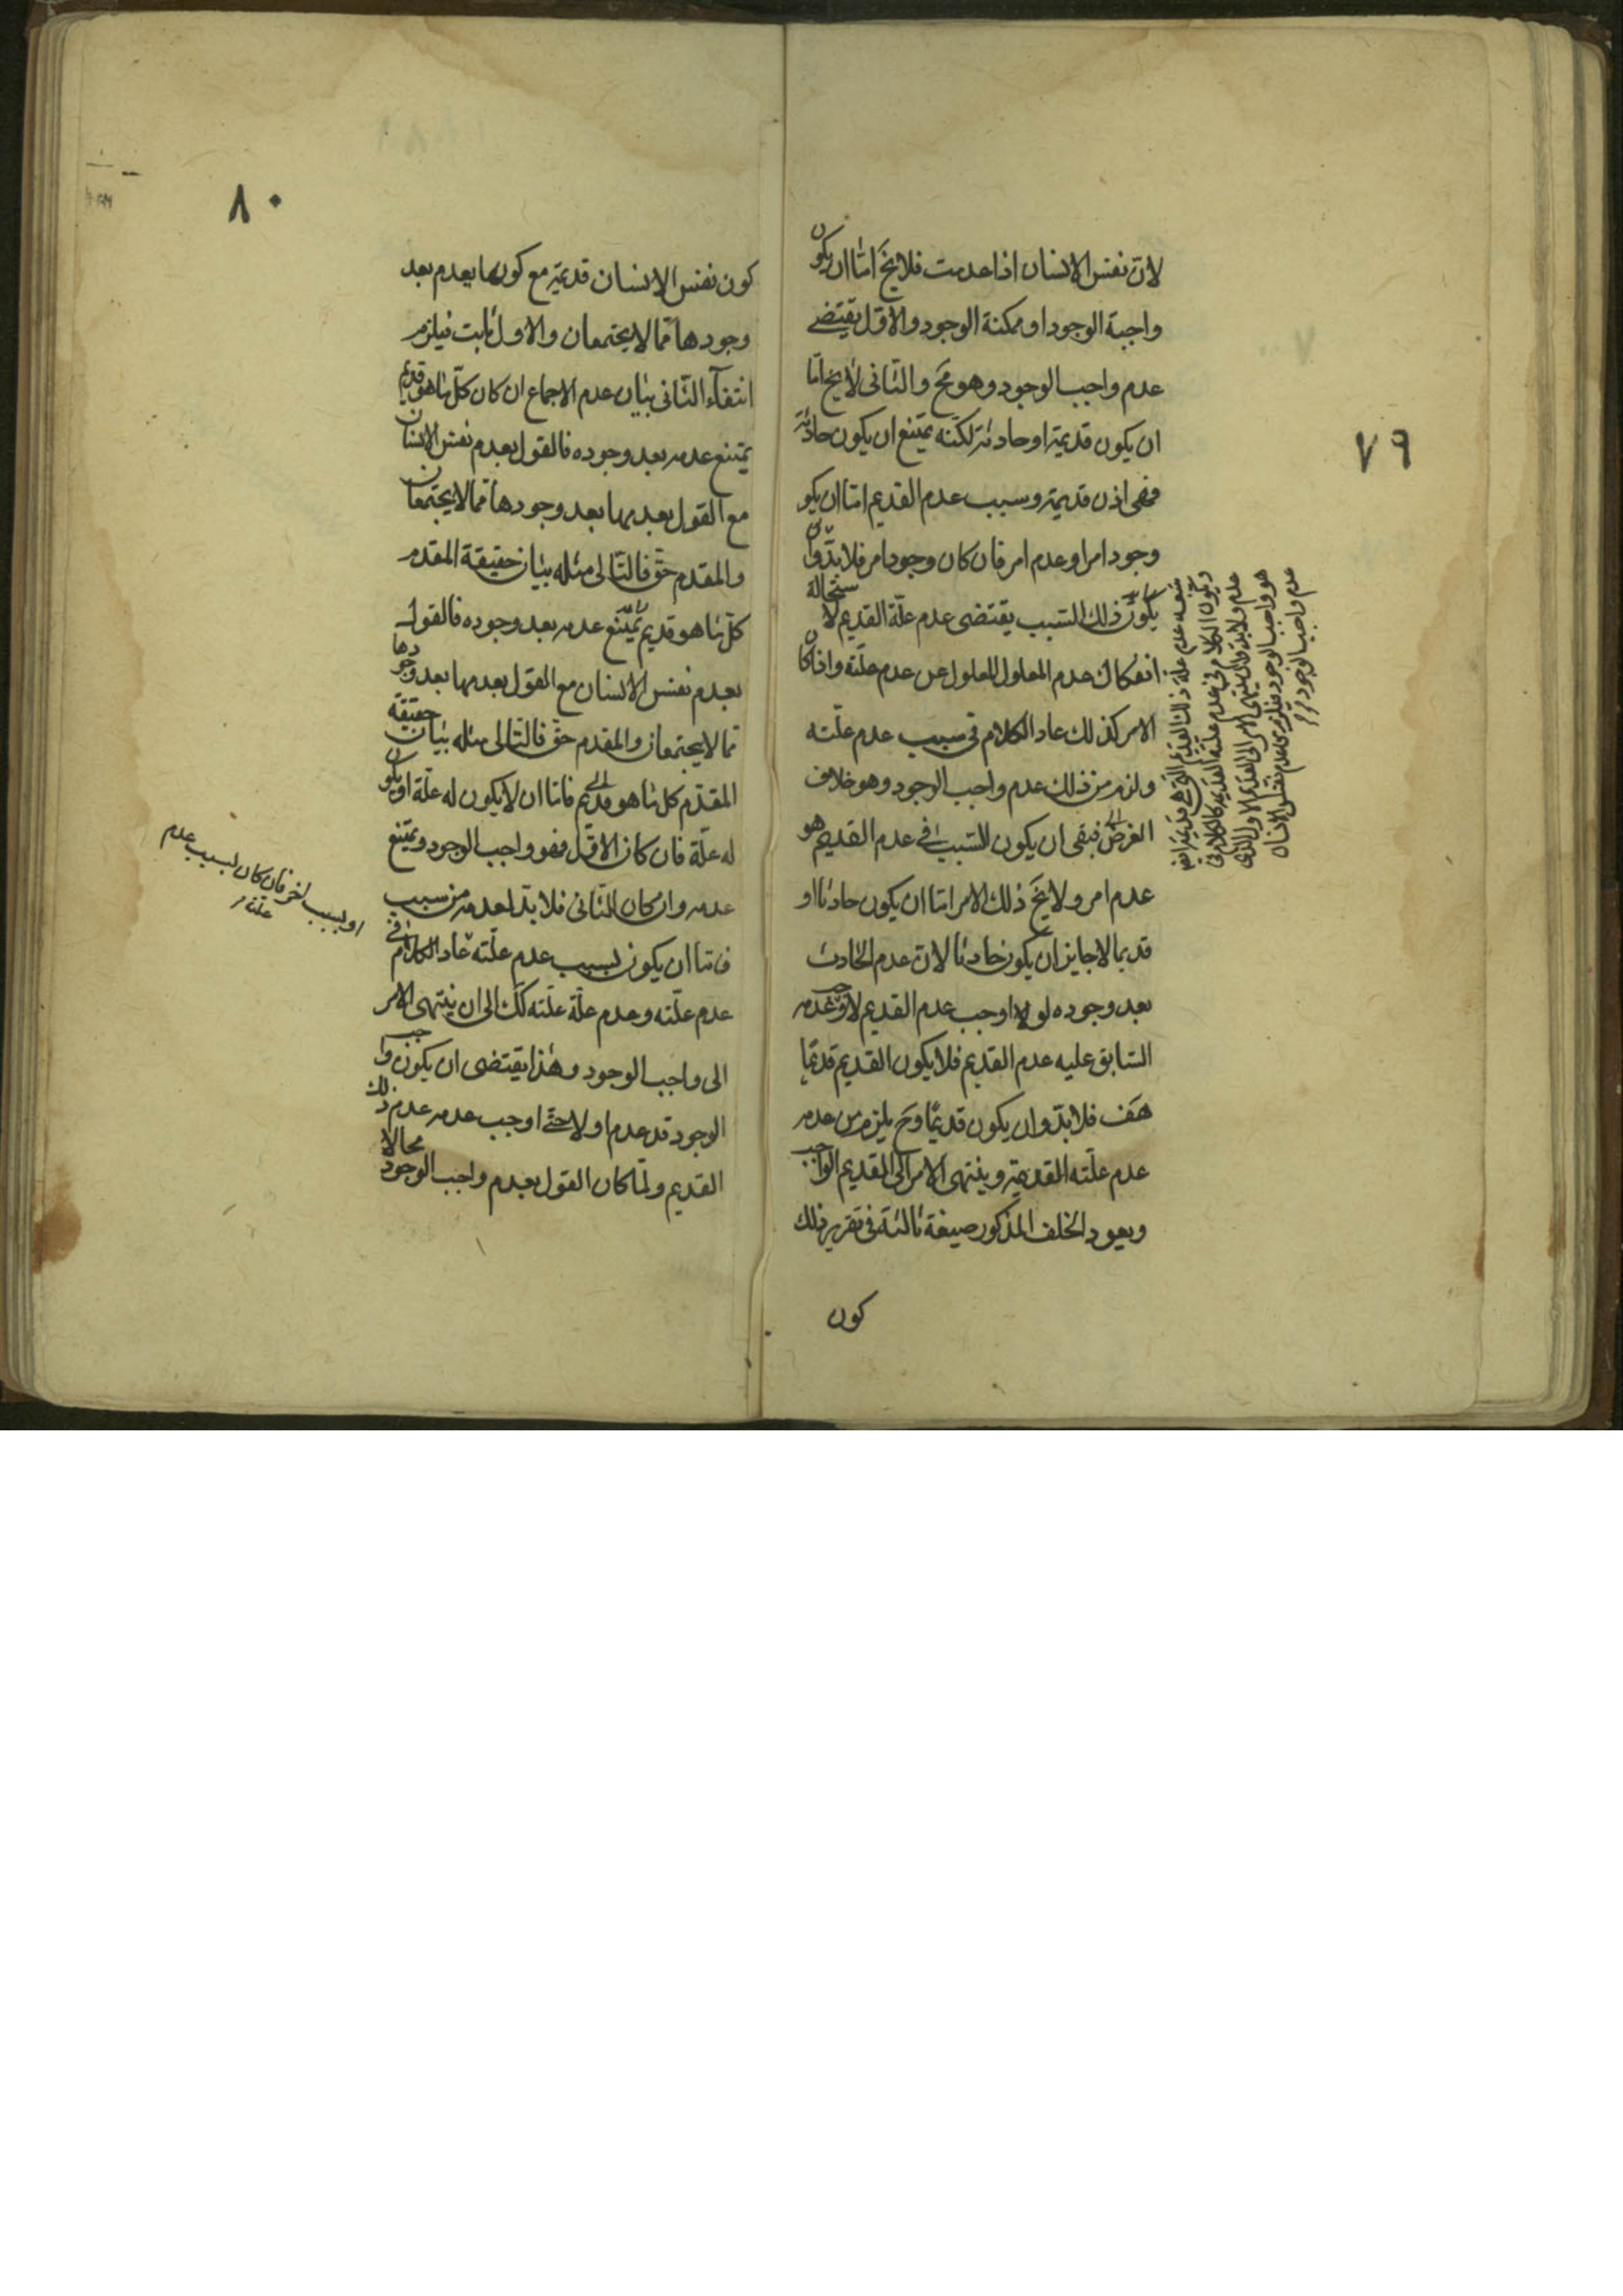 ٧٩
لان نفس الانسان اذا عدمت فلا يخ امّا ان يكون
واجبة الوجود او ممكنة الوجود والاوّل يقتضى
عدم واجب الوجود وهو مح والثانى لا يخ امّا
ان يكون قديمة او حادثة لكنّه يمتنع ان يكون حادثة
فهى اذن قديمة وسبب عدم القديم امّا ان يكو
وجود امر او عدم امر فان كان وجود امر فلا بدّ وان
يكون ذلك السّبب يقتضى عدم علّة القديم لاستحالة
انفكاك عدم المعلول للمعلول عن عدم علّته واذا كان
الامر كذلك عاد الكلام فى سبب عدم علّته
ولزم من ذلك عدم واجب الوجود وهو خلاف
الفرض فبقى ان يكون للسّبب فى عدم القديم هو
عدم امر ولا يخ ذلك الامر امّا ان يكون حادثا او
قديما لا جايز ان يكون حادثا لانّ عدم الحادث
بعد وجوده لو اوجب عدم القديم لاوجب عدمه
السّابق عليه عدم القديم فلا يكون القديم قديمًا
هف فلا بدّ وان يكون قديمًا وح يلزم من عدمه
عدم علّته القديمة وينتهى الامر الى القديم الواجب
ويعود الخلف المذكور صيغة ثالثة فى تقرير ذلك
كون
عدم علة ذلك القديم التى هى قديمة ايضا
ويكون الكلام فى عدم علته القديمة كالكلام فى
عدم ولا بد وان ينتهى الامر الى القديم الاول الذى
هو واجب الوجود فيلزم من عدم نفس الانسان
عدم واجب الوجود
٨٠
كون نفس الانسان قديمة مع كونها يعدم بعد
وجودها ممّا لا يجتمعان والاول ثابت فيلزم
انتفآء الثّانى بيان عدم الاجماع ان كان كلّ ما هو قديم
يمتنع عدمه بعد وجوده فالقول بعدم نفس الانسان
مع القول بعدمها بعد وجودها ممّا لا يجتمعان
والمقدم حقّ فالتّالى مثله بيان حقيقة المقدم
كلّ ما هو قديم يمتنع عدمه بعد وجوده فالقول
بعدم نفس الانسان مع القول بعدمها بعد وجودها
ممّا لا يجتمعان والمقدم حقّ فالتّالى مثله بيان حقيقة
المقدّم كل ما هو قديم فامّا ان لا يكون له علّة او يكون
له علّة فان كان الاوّل فهو واجب الوجود ويمتنع
عدمه وان كان الثّانى فلا بدّ لعدمه من سبب
فامّا ان يكون بسبب عدم علّته عاد الكلام فى
عدم علّته وعدم علّة علّته كك الى ان ينتهى الامر
الى واجب الوجود وهذا يقتضى ان يكون واجب
الوجود قد عدم اولا حتّى اوجب عدمه عدم ذلك
القديم ولمّا كان القول بعدم واجب الوجود محالا
او بسبب اخر فان كان بسبب عدم
علته